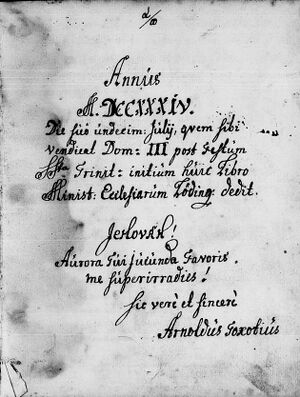 α/ω
Annus
M.DCCXXXIV.
Die sub undecim: Julij, quem sibi
vendicat Dom: III post Festum
SSta Trinit: initium huic Libro
Minist: Ecclesiarum Töding: dedit.
Jehovah!
Aurora Tui jucunda Favoris
me superirradies!
sic verè et sincerè
Arnoldus